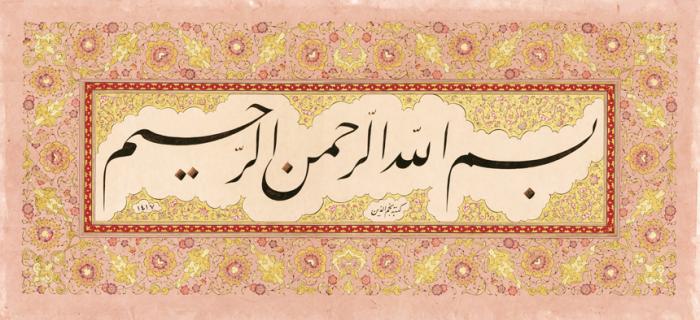 بسم الله الرحمن الرحيم
كتبه نجم الدين
١٤١٧